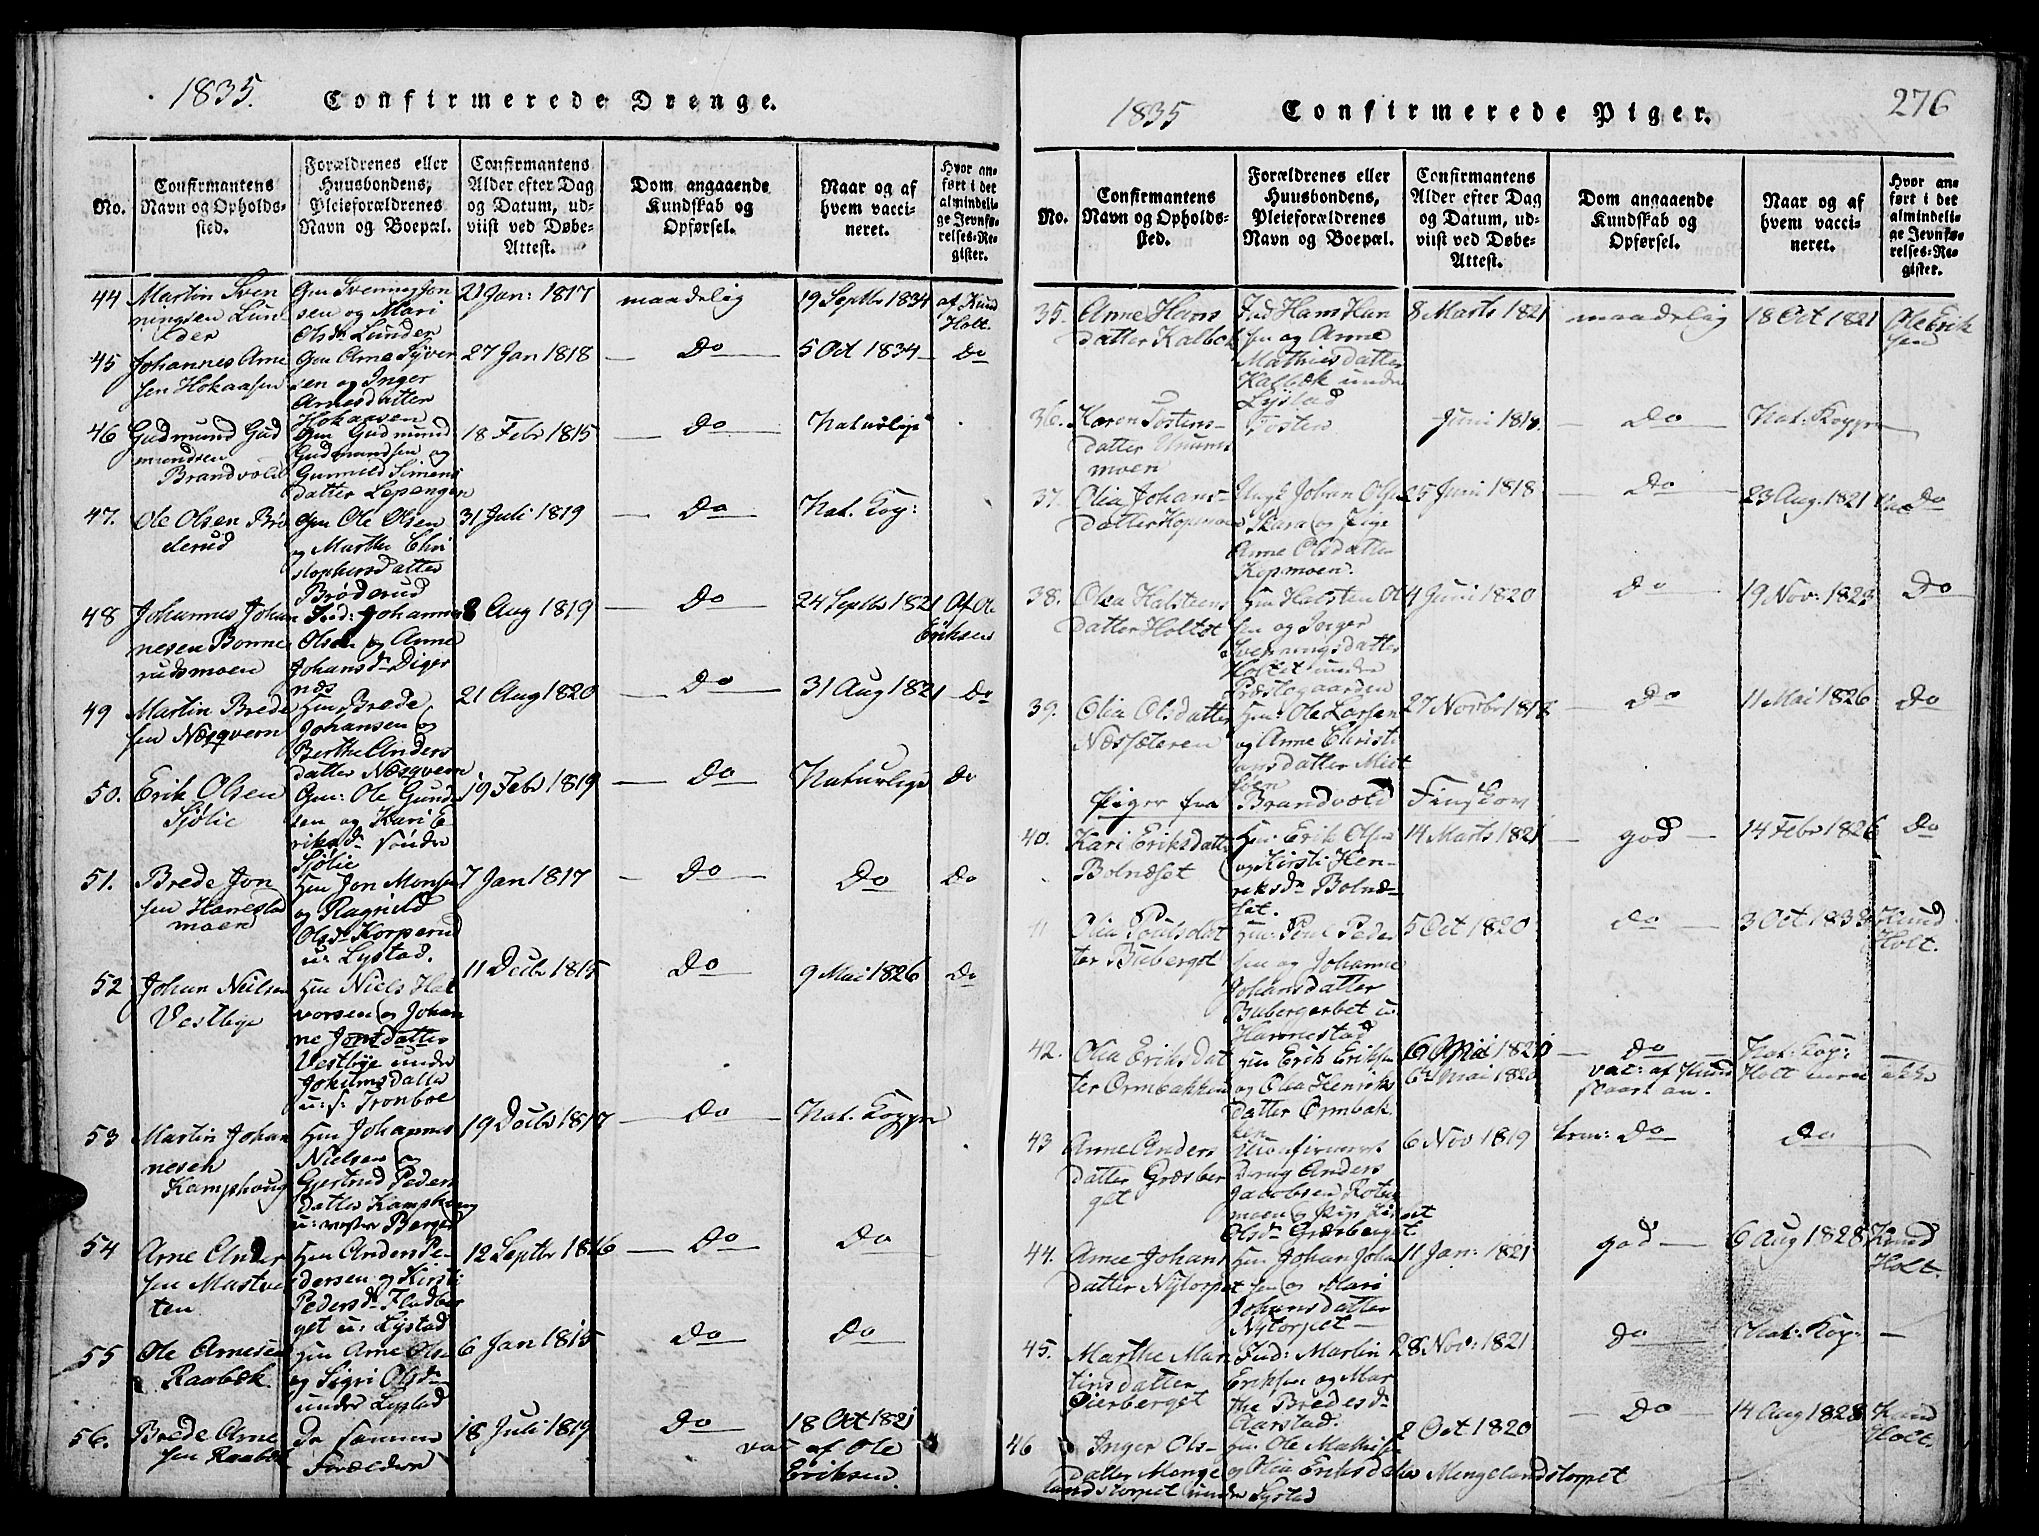 1835. Confirmerede Drenge.
No.
Confirmantens
Navn og Opholds-
sted.
Forældrenes eller
Huusbondens,
Pleieforældrenes
Navn og Boepæl.
Confirmantens
Alder efter Dag
og Datum, ud-
viist ved Døbe-
Attest.
Dom angaaende
Kundskab og
Opførsel.
Naar og af
hvem vacci-
neret.
Hvor an-
ført i det
almindeli-
ge Jevnfø-
relses-Re-
gister.
44 Martin Sven
ningsen Lun-
der
Gm Svenning Jon
sen og Mari
Olsdr Lunder
21 Jan: 1817
maadelig
19 Septbr 1834
af Knud
Holt.
45 Johannes Arne
sen Hokaasen
Gm Arne Syver
sen og Inger
Arnesdatter
Hokaasen
27 Jan 1818
Do
5 Oct 1834
Do
46 Gudmund Gud
mundsen
Brandvold
Gm Gudmund
Gudmundsen og
Gunnild Simens
datter Lepengen
18 Febr 1815
Do
Naturlige
47. Ole Olsen Brö
derud
Gm Ole Olsen
og Marthe Chri
stophersdatter
Bröderud
31 Juli 1819
Do
Nat. Kop:
48 Johannes Johan
nesen Bonne
rudsmoen
Ind: Johannes
Olsen og Anne
Johansdr Diger
næs
8 Aug 1819
Do
24 Septbr 1821
Af Ole
Eriksen
49 Martin Brede
sen Næsqvern
Hm Brede
Johansen og
Berthe Anders
datter Næsqvern
21 Aug 1820
Do
31 Aug 1821
Do
50. Erik Olsen
Sjölie
Gm: Ole Gund
sen og Kari E-
riksdr söndre
Sjölie
19 Febr 1819
Do
Naturlige
Do
51. Brede Jon
sen Harrestad
moen
Hm Jon Monsen
og Ragnild
Olsdr Korperud
u: Lystad.
7 Jan 1817
Do
Do
Do
52 Johan Nielsen
Vestbye
Hm Niels Hal
vorsen og Johan
ne Jonsdatter
Vestbye under
11 Decbr 1815
Do
9 Mai 1826
Do
53 Martin Johan
nesen
Kamphoug
Hm Johannes
Nielsen og
Gjertrud Peders
datter Kamphoug
u: vestre Berger
19 Decbr 1817
Do
Nat. Kopper
54 Arne Ander
sen Mastve
ten
Hm Anders Pe-
dersen og Kirsti
Pedersdr Fludber
get u: Lystad
12 Septbr 1816
Do
Do
55 Ole Arnesen
Raabæk
Hm Arne Ols
og Sigri Olsdr
under Lystad
6 Jan 1815
Do
Do
56. Brede Arne
sen Raabæk
De samme
Forældre
18 Juli 1819
Do
18 Oct 1821
vac af Ole
Eriksen.
1835 Confirmerede Piger. 276
No.
Confirmantens
Navn og Opholds-
sted.
Forældrenes eller
Huusbondens,
Pleieforældrenes
Navn og Boepæl.
Confirmantens
Alder efter Dag
og Datum, ud-
viist ved Døbe-
Attest.
Dom angaaende
Kundskab og
Opførsel.
Naar og af
hvem vacci-
neret.
Hvor an-
ført i det
almindeli-
ge Jevnfø-
relses-Re-
gister.
35. Anne Hans
datter Kalbæk
Ind Hans Han
sen og Anne
Mathiesdatter
Kalbæk under
Lystad
8 Marts 1821
maadelig
18 Oct 1821
Ole Erik
sen
36. Karen Tostens-
datter
moen
Tosten
Juni
Do
Nat: Kopper
37. Olia Johans-
datter Kopmoen
Ungk Johan Olsen
Skara og Pige
Anne Olsdatter
Kopmoen.
25 Juni 1818
Do
23 Aug. 1821
Do
38. Olea Halsteens
datter Holtet
Hm Halsten Ol
sen og Inger
Svenningsdatter
Holtet under
Præstegaarden
4 Juni 1820
Do
19 Nov: 182
Do
39. Olia Olsdatter
Næssæteren
Hm: Ole Larsen
og Anne Christi
ansdatter
27 Novbr
Do
11 Mai 1826
Do
Piger fra Brandvold Finskov
40. Kari Eriksdatter
Bolnæset
Hm: Erik Olsen
og Kirsti Hen-
riksdr Bolnæ-
set.
14 Marts 1821
god
14 Febr 1826
Do
Olia Poulsdat
ter Buberget
Hm: Poul Peder
sen og Johanne
Johansdatter
Buberget u:
Harrestad
5 Oct 1820
Do
3 Oct
Knud
Holt.
42. Olia Eriksdat
ter Ormbakken
Hm Erik Eriksen
og Olea Henriks
datter Ormbak
ken
6te Mai 1820
Do
Nat: Kop:
vac: af Knud
Holt
43 Anne Anders
datter Græsber
get
Anders
Jacobsen
moen og Pige
Olsdr Græsberget
6 Nov 1819
Do
Do
44. Anne Johans
datter Nytorpet
Hm Johan Johan
sen og Mari
Johansdatter
Nytorpet
11 Jan: 1821
god
6 Aug 1828
Knud
Holt.
45. Marthe Mar
tinsdatter
Oierberget
Ind: Martin
Eriksen og Mar
the Bredesdr
Aarstad.
28 Nov: 1821
Do
Nat: Kop:
46 Inger Ols-
datter Menge
landstorpet under Lystad
Hm: Ole Mathise
og Olia Eriksdatter Mengelandstorpet
2 Oct 1820
Do
14 Aug 1828
Knud
Holt.